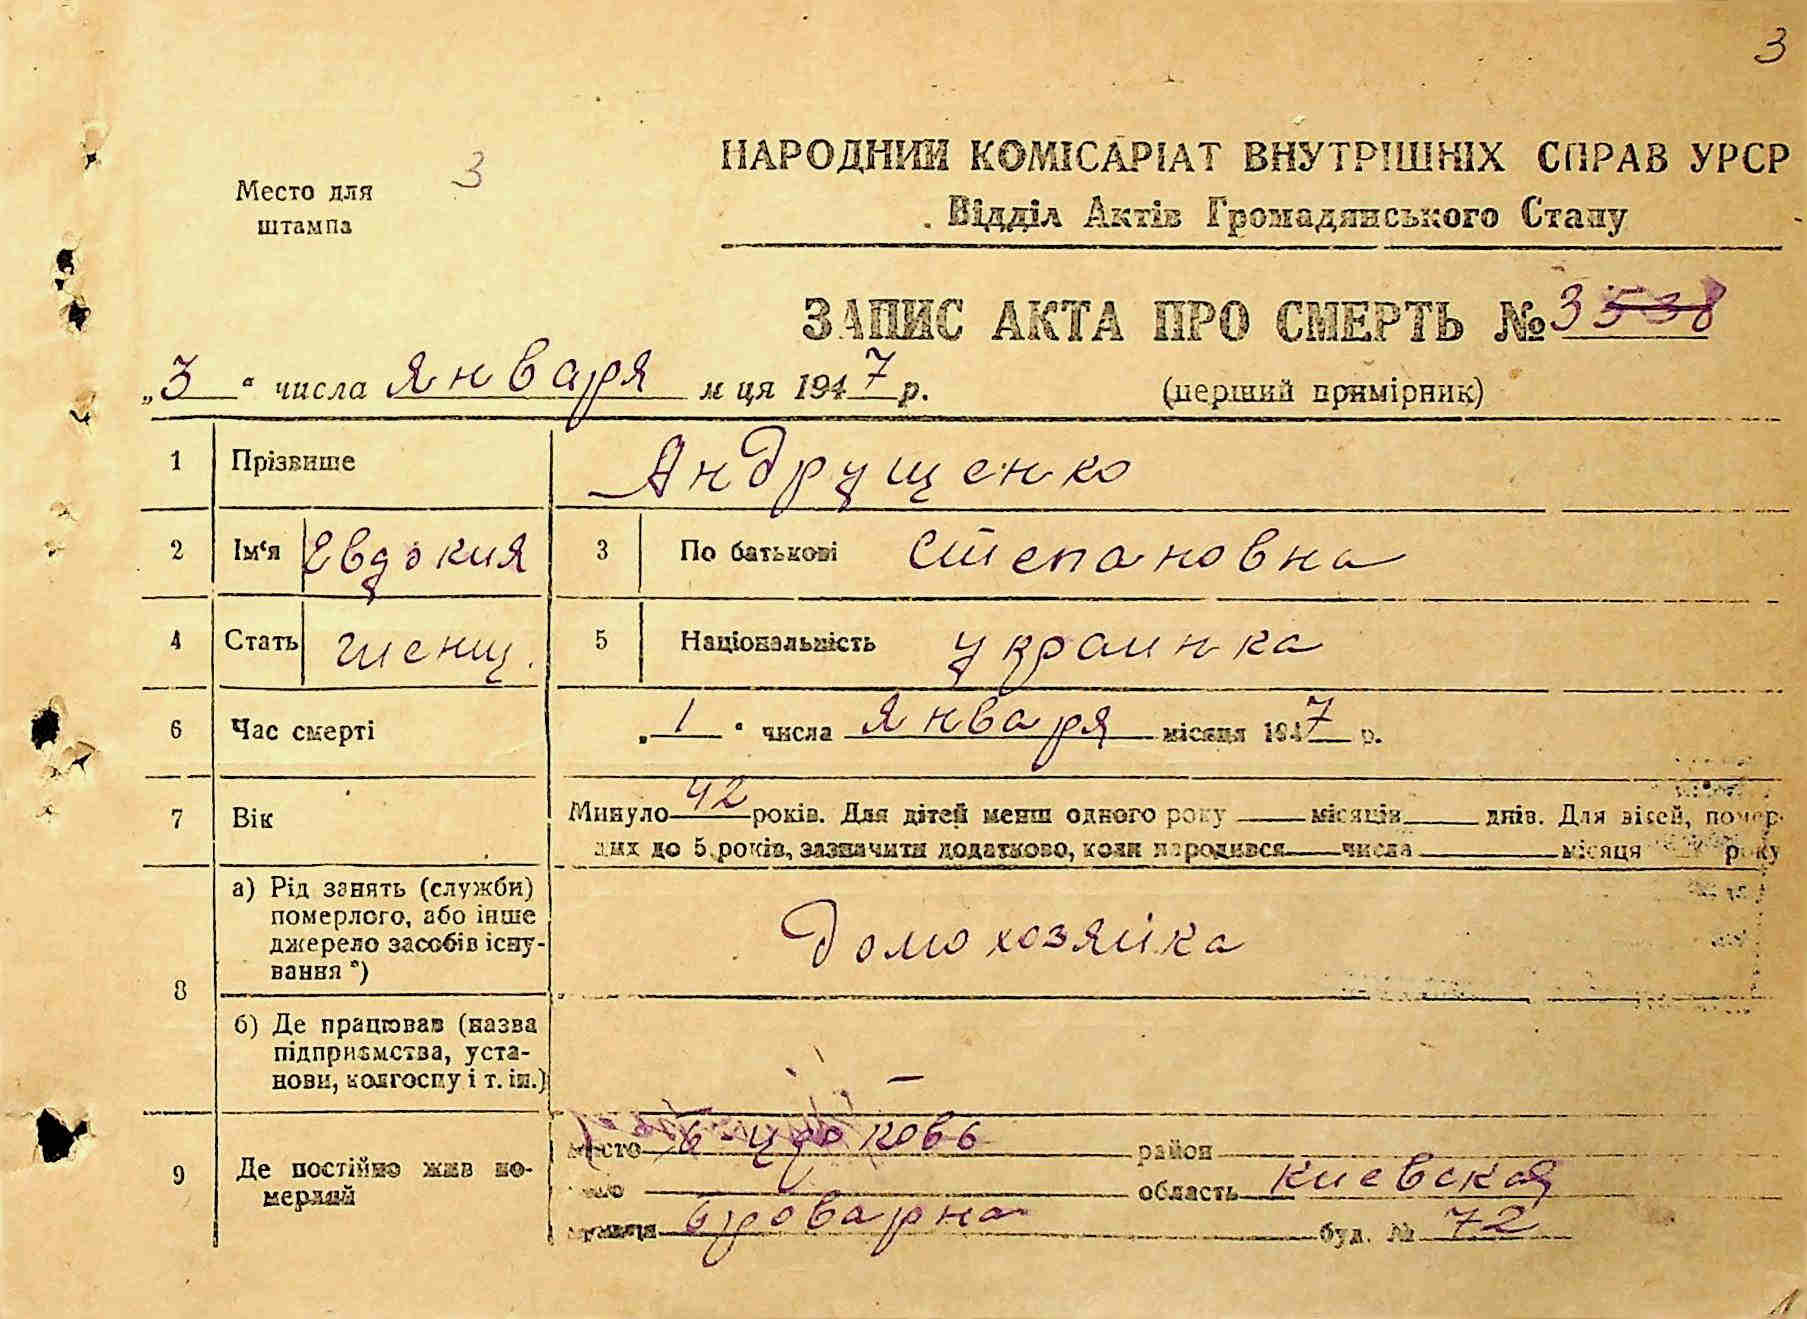 3
Место для
штампа
3
НАРОДНИЙ КОМІСАРІАТ ВНУТРІШНІХ СПРАВ УРСР
Відділ Актів Громадянського Стану
ЗАПИС АКТА ПРО СМЕРТЬ № 3 538
„3“ числа января м ця 1947 р.
(перший примірник)
1 Прізвише Андрущенко
2 Ім‘я Евдокия 3 По батькові Степановна
4 Стать женщ. 5 Національність украинка
6 Час смерті „1“ числа января місяця 1947 р.
7 Вік Минуло 42 років. Для дітей менш одного року місяців днів. Для дітей, помер-
лих до 5 років, зазначити додатково, коли народився числа місяця року
8 а) Рід занять (служби)
померлого, або інше
джерело засобів існу-
вання *)
Домохозяйка
б) Де працював (назва
підприємства, уста-
нови, колгоспу і т. ін.)
—
9 Де постійно жив по-
мерлий
место Б-Церковь район
село область Киевская
вулиця Броварна буд. № 72